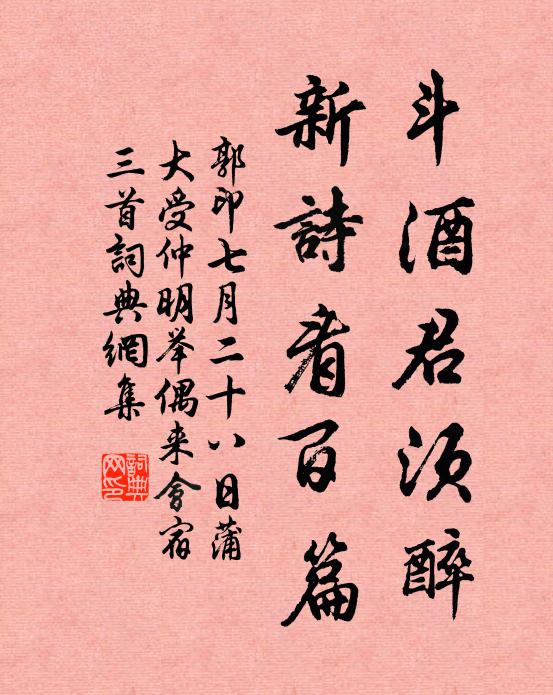 斗酒君须醉
新詩看百篇
郭印七月二十八日蒲
大受仲明举偶来會宿
三首詞典網集
詞典网印